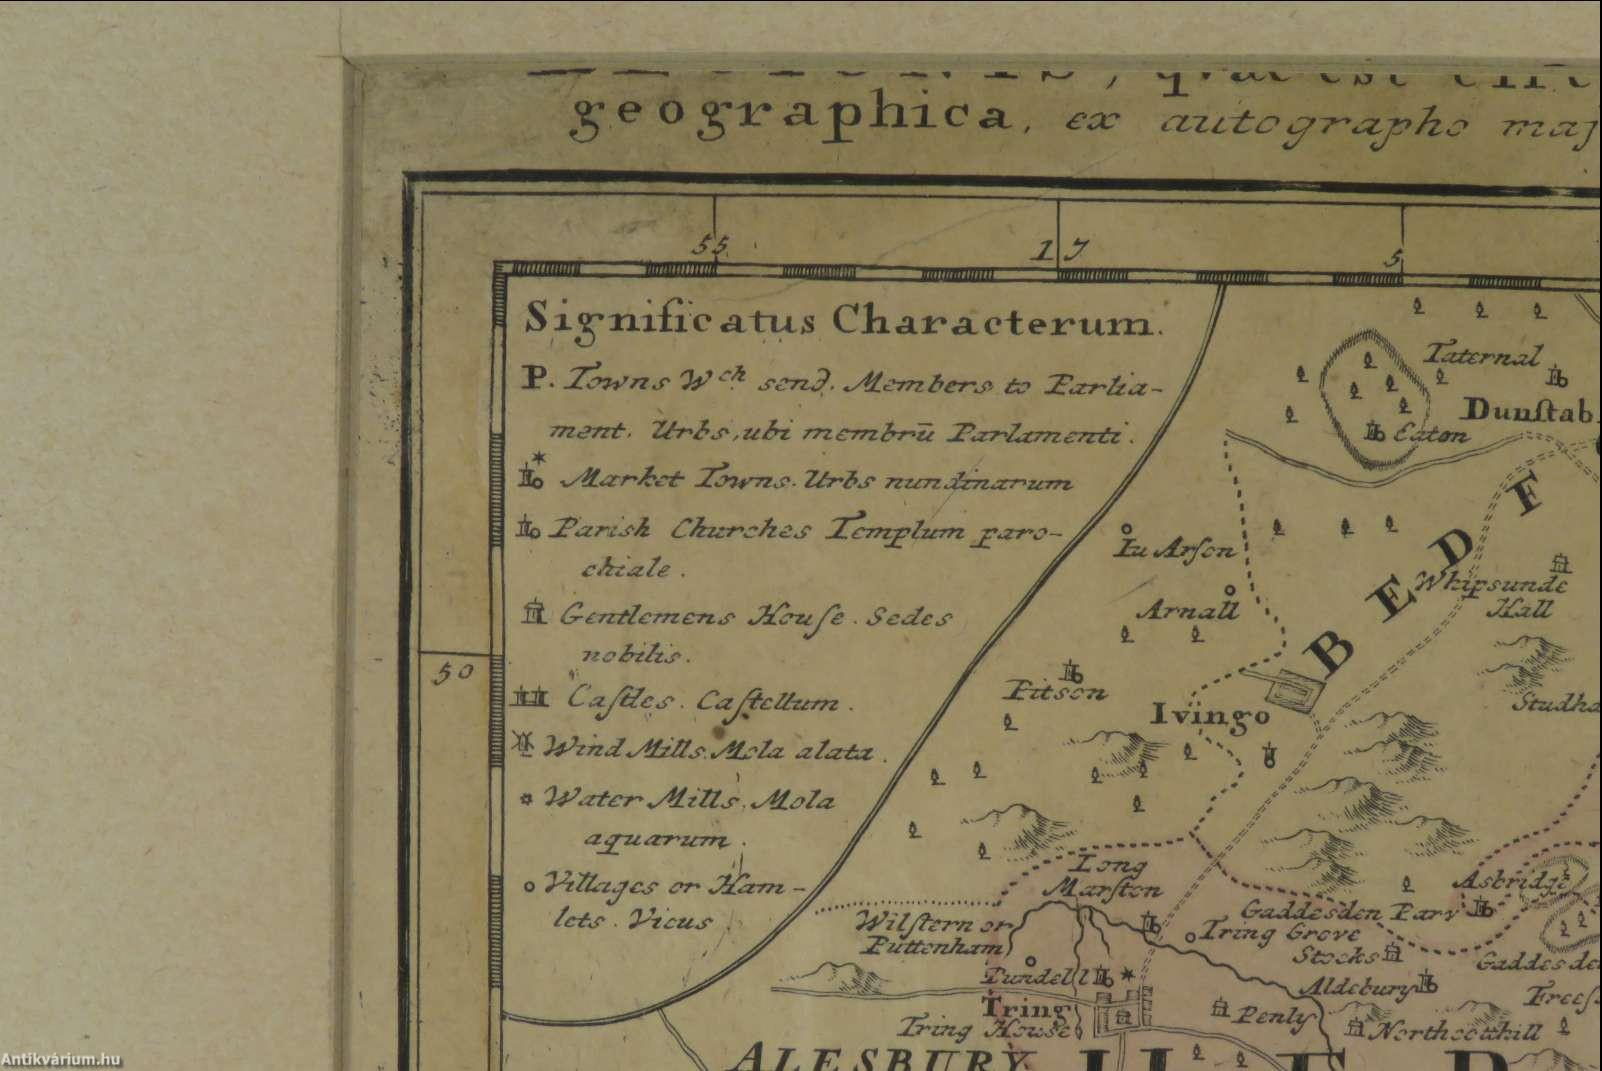 geographica, ex autographo
55
17
5
Significatus Characterum.
P. Towns Wch send. Members to Parlia-
ment. Urbs, ubi membrū Parlamenti.
Market Towns. Urbs nundinarum
Parish Churches Templum paro-
chiale.
Gentlemens Houſe. Sedes
nobilis.
50
Caſtles. Caſtellum.
Wind Mills. Mola alata.
Water Mills. Mola
aquarum.
Villages or Ham-
lets. Vicus
Taternal
Dunſtab
Eaton
BEDF
Iu Arſon
Whipsunde
Hall
Arnall
Pitson
Studha
Ivingo
Long
Marſton
Asbridge
Gaddesden Parv
Wilſtern or
Puttenham
Tring Grove
Stocks
Gaddesde
Tundell
Aldebury
Freeſ
Tring
Penly
Tring House
Northcotthill
ALESBURY
HER
Antikvárium.hu